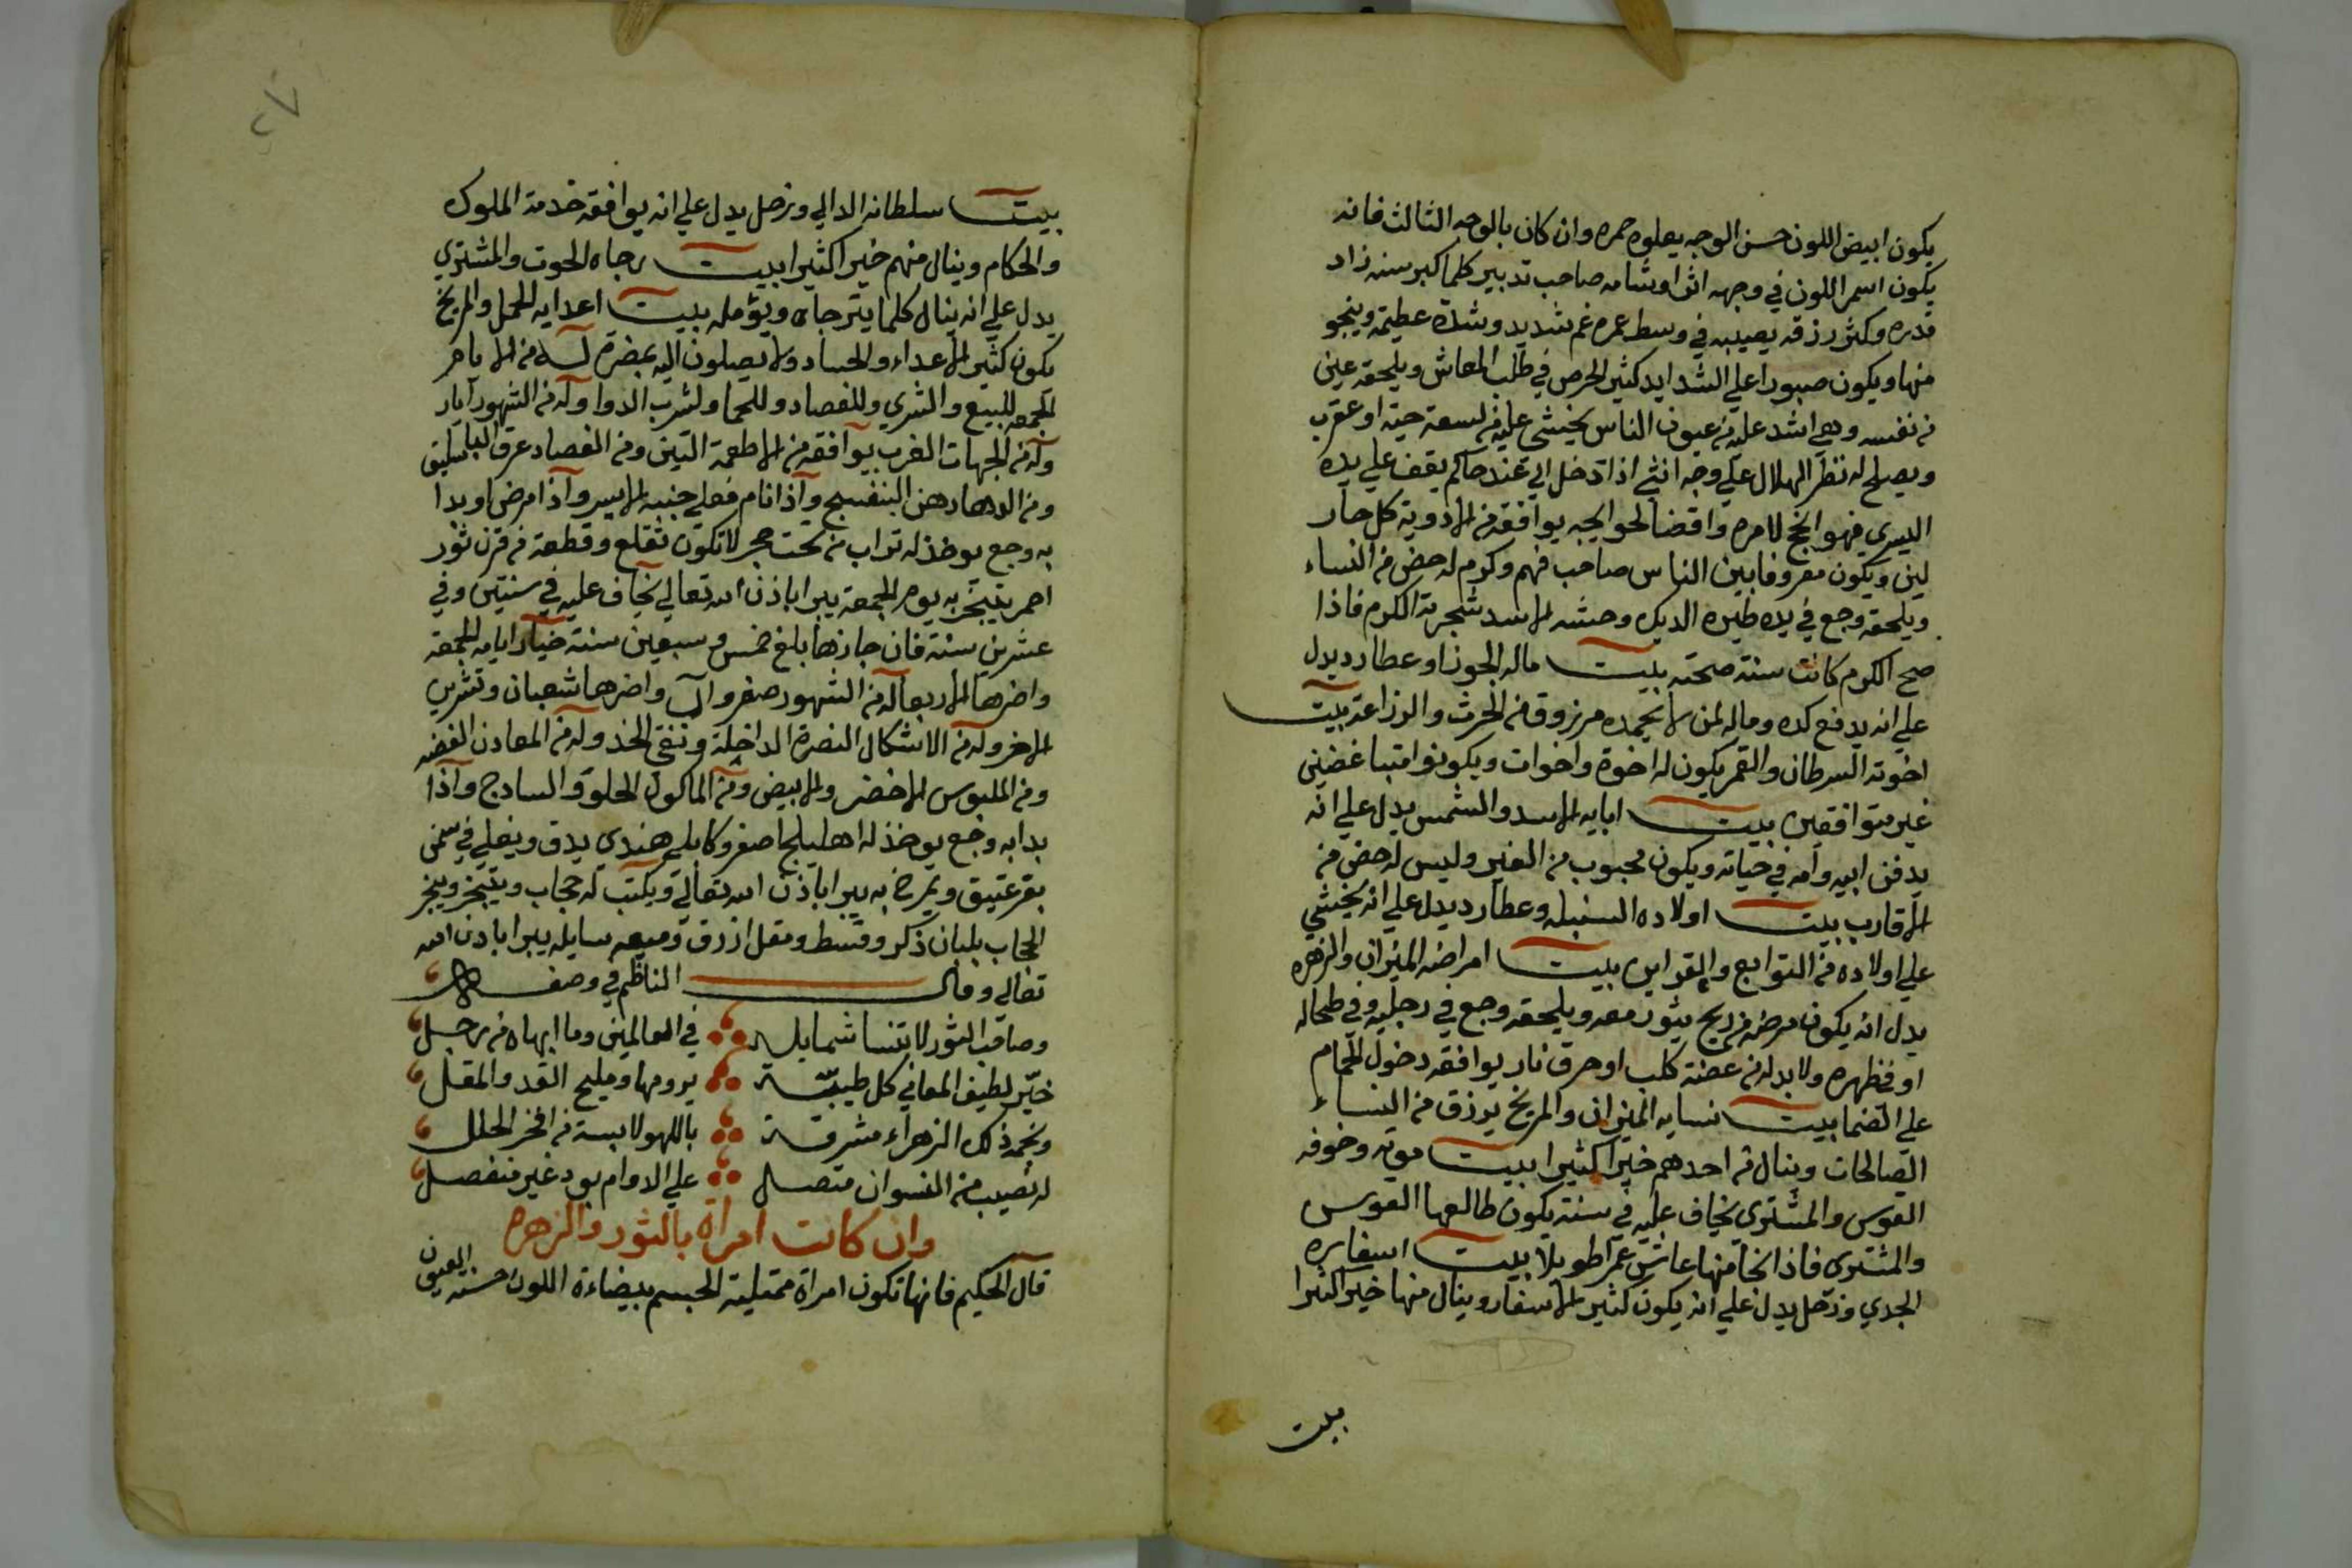 يكون ابيض اللون حسن الوجه يعلوه حمره وان كان بالوجه الثالث فانه
يكون اسمر اللون في وجهه اثر او شامه صاحب تدبير كلما كبر سنه زاد
قدره وكثر رزقه يصيبه في وسط عمره غم شديد وشدة عظيمة وينجو
منها ويكون صبورا علي الشدايد كثير الحرص في طلب المعاش ويلحقه عين
من نفسه وهي اشد عليه من عيون الناس يخشى عليه من لسعة حية او عقرب
ويصلح له نظر الهلال علي وجه انثي اذا دخل الي عند حاكم يقف علي يده
اليسري فهو انجح لامره واقضا لحوايجه يوافقه من الادوية كل حار
لين ويكون معروفا بين الناس صاحب فهم وكرم له حض من النساء
ويلحقه وجع في يده طيره الديك وحشه الاسد شجرته الكرم فاذا
صح الكرم كانت سنة صحته بيت ماله الجوزا وعطارد يدل
علي انه يدفع كده وماله لمن لا يحمده مرزوق من الحرث والزراعة بيت
اخوته السرطان والقمر يكون له اخوة واخوات ويكونوا متباغضين
غير متوافقين بيت ابايه الاسد والشمس يدل علي انه
يدفن ابيه وامه في حياته ويكون محبوب من الغير وليس له حض من
الاقارب بيت اولاده السنبله وعطارد يدل علي انه يخشي
علي اولاده من التوابع والقراين بيت امراضه الميزان والزهره
يدل انه يكون مرضه من ريح يثور معه ويلحقه وجع في رجليه وفي طحاله
او في ظهره ولا بد له من عضة كلب او حرق نار يوافقه دخول الحمام
علي الضما بيت نسايه الميزان والمريخ يرزق من النساء
الصالحات وينال من احدهم خيرا كثيرا بيت موته وخوفه
القوس والمشتري يخاف عليه في سنة يكون طالعها القوس
والمشتري فاذا نجا منها عاش عمرا طويلا بيت اسفاره
الجدي وزحل يدل علي انه يكون كثير الاسفار وينال منها خيرا كثيرا
بيت
بيت سلطانه الدالي وزحل يدل علي انه يوافقه خدمة الملوك
والحكام وينال منهم خيرا كثيرا بيت رجاه الحوت والمشتري
يدل علي انه ينال كلما يترجاه ويؤمله بيت اعدايه الحمل والمريخ
يكون كثير الاعداء والحساد ولا يصلون اليه بمضرة له من الايام
الجمعه للبيع والشري وللفصاد وللحما ولشرب الدوا وله من الشهور ايار
وله من الجهات الغرب يوافقه من الاطعمة التين ومن الفصاد عرق الباسليق
ومن الادهان دهن البنفسج واذا نام فعلي جنبه الايسر واذا مرض او بدا
به وجع يوخذ له تراب من تحت حجر لا تكون تقلع وقطعة من قرن ثور
احمر يتبخر به يوم الجمعة يبرا باذن الله تعالي يخاف عليه في سنتين وفي
عشرين سنة فان جازها بلغ خمس وسبعين سنة خيار ايامه الجمعة
واضرها الاربعا له من الشهور صفر واب واضرها شعبان وتشرين
الاخر وله من الاشكال النصرة الداخلة ونقي الخد وله من المعادن الفضه
ومن الملبوس الاخضر والابيض ومن الماكول الحلو والسادج واذا
بدا به وجع يوخذ له اهليلج اصفر وكابلي هندي يدق ويغلي في سمن
بقر عتيق ويمرخ به يبرا باذن الله تعالي ويكتب له حجاب ويتبخر ويبخر
الحجاب بلبان ذكر وقسط ومقل ازرق وميعه سايله يبرا باذن الله
تعالي وقال الناظم في وصف
وصاحب الثور لا تنسا شمايله في العالمين وما ابهاه من رجل
خيّر لطيف المعاني كل طيبة يرومها ومليح القد والمقل
ونجمه ذلك الزهراء مشرقة باللهو لابسة من افخر الحلل
له نصيب من النسوان متصل علي الدوام بود غير منفصل
وان كانت امراة بالثور والزهره
قال الحكيم فانها تكون امراة ممتلية الجسم بيضاءة اللون حسنه العيون